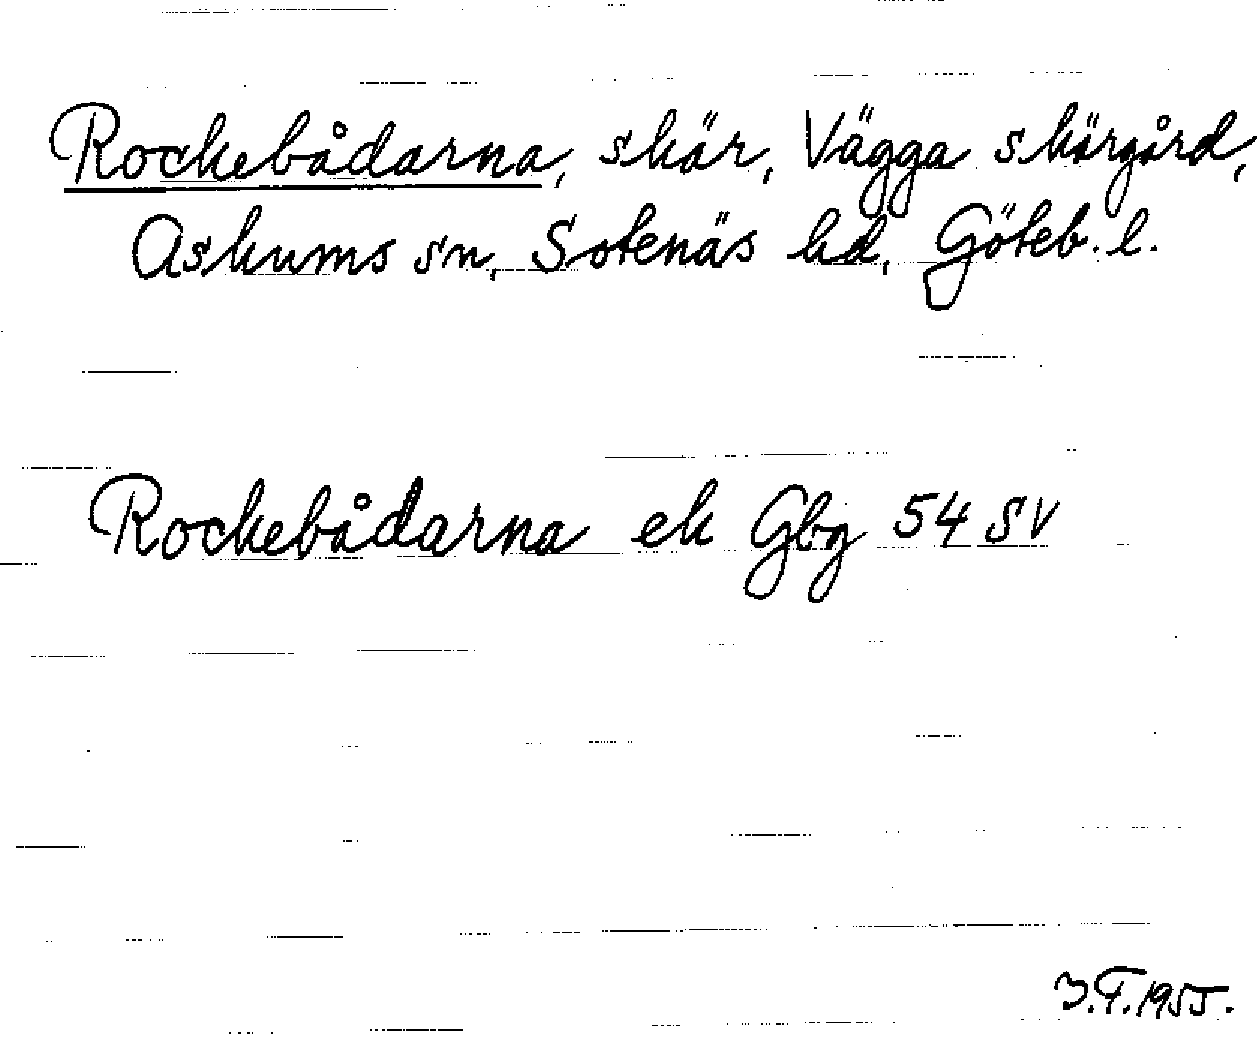 Rockebådarna, skär, Vägga skärgård,
Askums sn, Sotenäs hd, Göteb. l.
Rockebådarna ek Gbg 54 SV
1955.